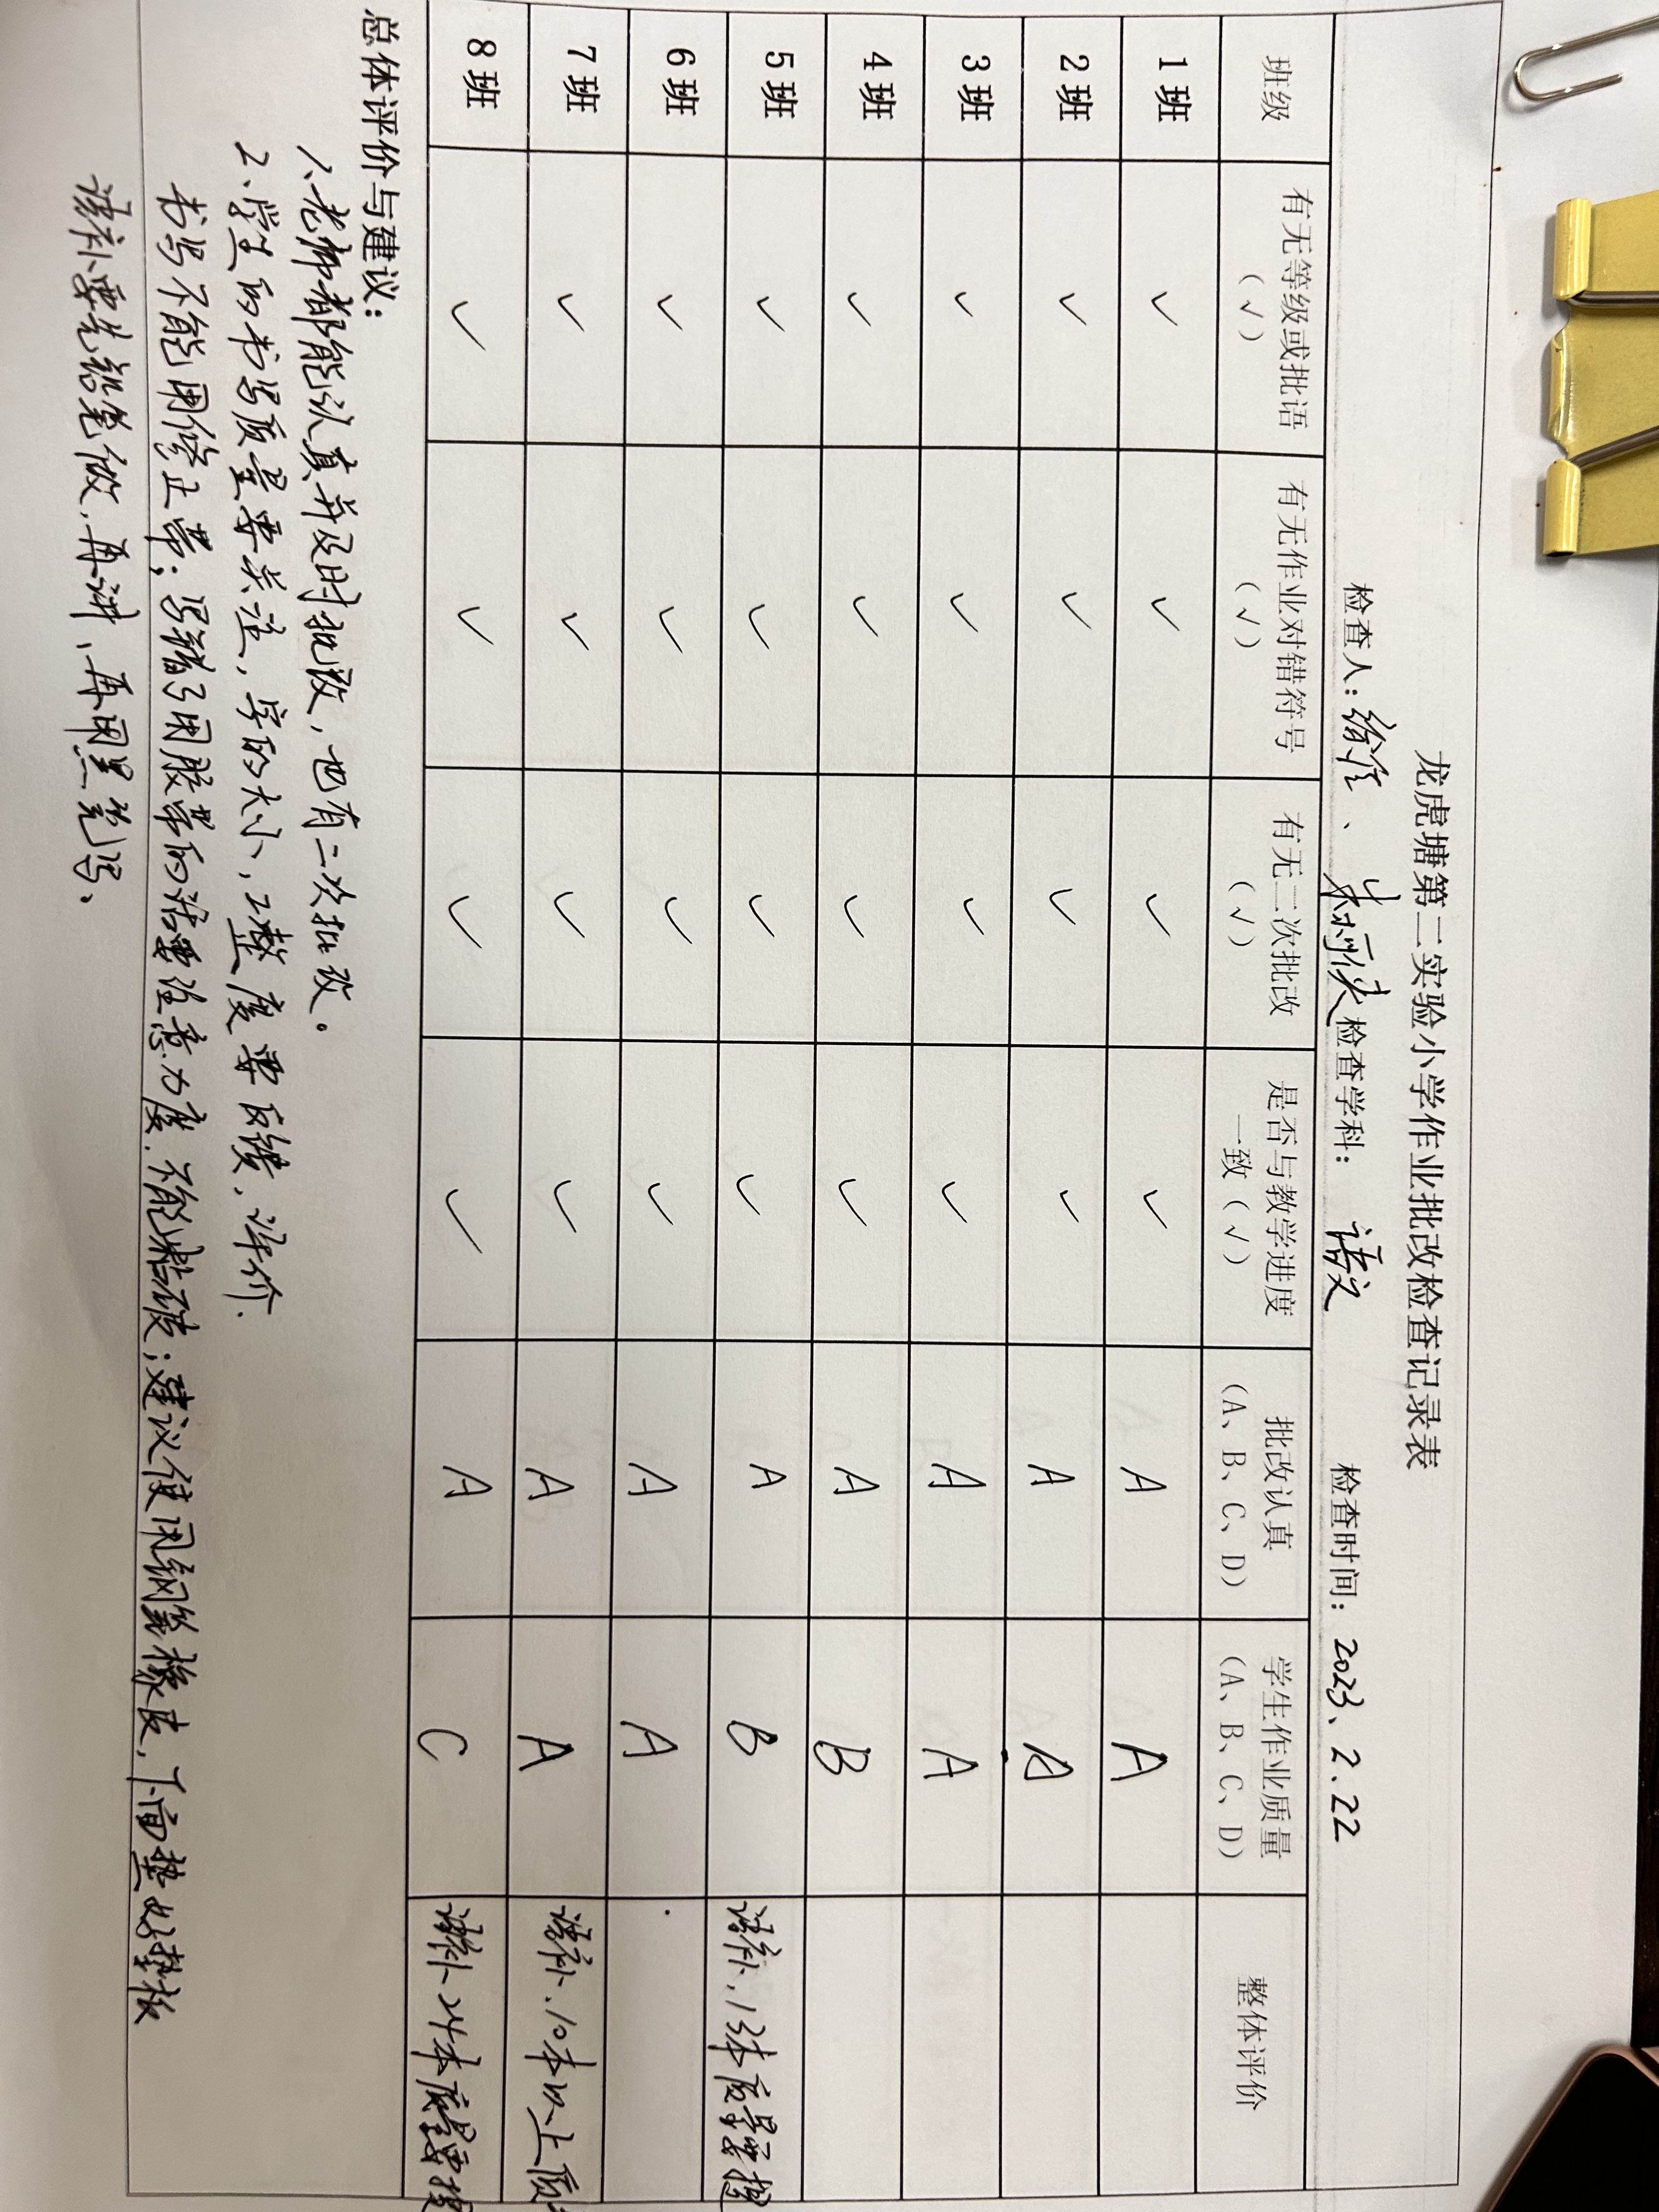 龙虎塘第二实验小学作业批改检查记录表
检查人：徐佳、朱柯佚 检查学科：语文 检查时间：2023、2.22
班级 有无等级或批语（√） 有无作业对错符号（√） 有无二次批改（√） 是否与教学进度一致（√） 批改认真（A、B、C、D） 学生作业质量（A、B、C、D） 整体评价
1班 ✓ ✓ ✓ ✓ A A
2班 ✓ ✓ ✓ ✓ A A
3班 ✓ ✓ ✓ ✓ A A
4班 ✓ ✓ ✓ ✓ A B
5班 ✓ ✓ ✓ ✓ A B 语补，13本质量要提
6班 ✓ ✓ ✓ ✓ A A
7班 ✓ ✓ ✓ ✓ A A 语补，10本以上质
8班 ✓ ✓ ✓ ✓ A C 语补24本质量要提
总体评价与建议：
1、老师都能认真并及时批改，也有二次批改。
2、学生的书写质量要关注，字的大小，工整度要反馈，评价.
书写不能用修正带；写错了用胶带的话要注意力度，不能粘破；建议使用钢丝橡皮，下面垫好垫板
语补要先铅笔做，再讲，再用黑笔写、